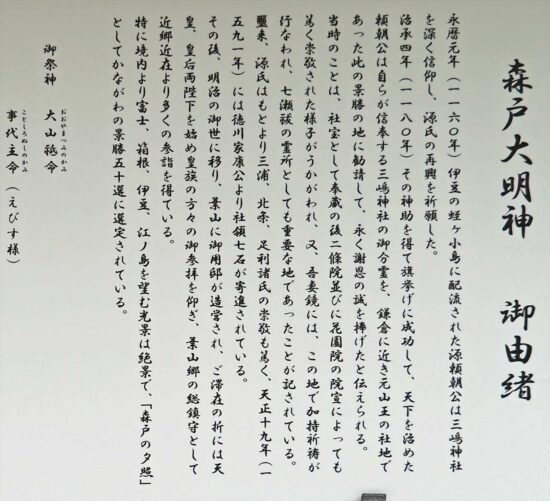 森戸大明神　御由緒
永暦元年（一一六〇年）伊豆の蛭ヶ小島に配流された源頼朝公は三嶋神社
を深く信仰し、源氏の再興を祈願した。
治承四年（一一八〇年）その神助を得て旗挙げに成功して、天下を治めた
頼朝公は自らが信奉する三嶋神社の御分霊を、鎌倉に近き元山王の社地で
あった此の景勝の地に勧請して、永く謝恩の誠を捧げたと伝えられる。
当時のことは、社宝として奉蔵の後二條院並びに花園院の院宣によっても
篤く崇敬された様子がうかがわれ、又、吾妻鏡には、この地で加持祈祷が
行なわれ、七瀬祓の霊所としても重要な地であったことが記されている。
爾来、源氏はもとより三浦、北条、足利諸氏の崇敬も篤く、天正十九年（一
五九一年）には徳川家康公より社領七石が寄進されている。
その後、明治の御世に移り、葉山に御用邸が造営され、ご滞在の折には天
皇、皇后両陛下を始め皇族の方々の御参拝を仰ぎ、葉山郷の総鎮守として
近郷近在より多くの参詣を得ている。
特に境内より富士、箱根、伊豆、江ノ島を望む光景は絶景で、「森戸の夕照」
としてかながわの景勝五十選に選定されている。
御祭神　大山祗命
おおやまつみのかみ
事代主命（えびす様）
ことしろぬしのかみ